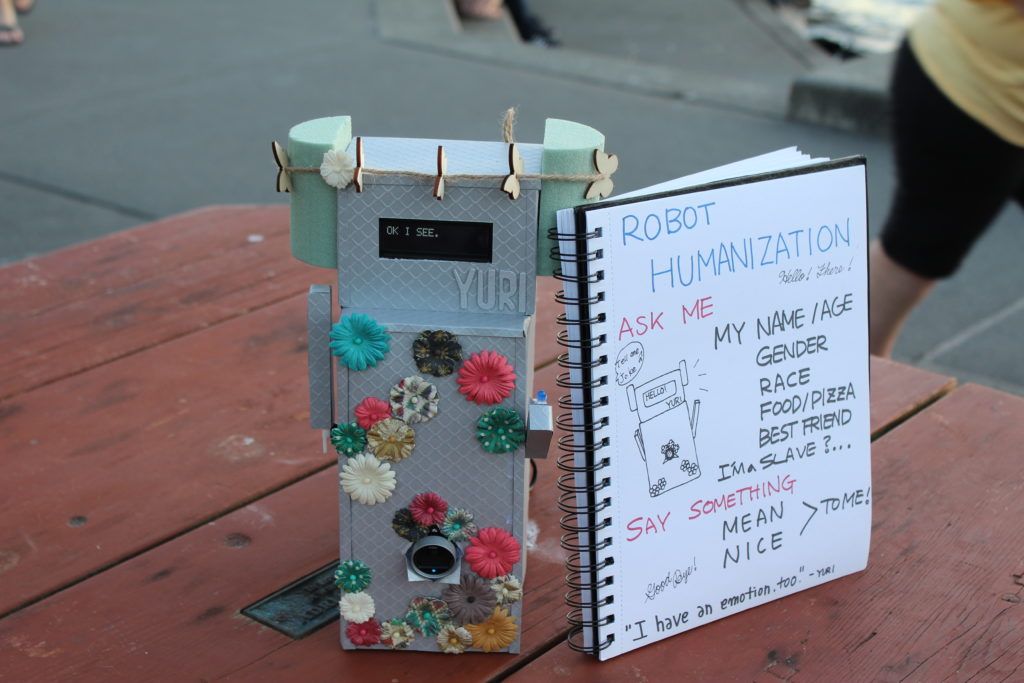 OK I SEE.
YURI
ROBOT
HUMANIZATION
Hello! There!
ASK ME
MY NAME/AGE
GENDER
RACE
FOOD/PIZZA
BEST FRIEND
I'M a SLAVE?...
Tell me
HELLO!
YURI
SAY SOMETHING
MEAN > TO ME!
NICE
Good Bye!
"I have an emotion.too." -YURI